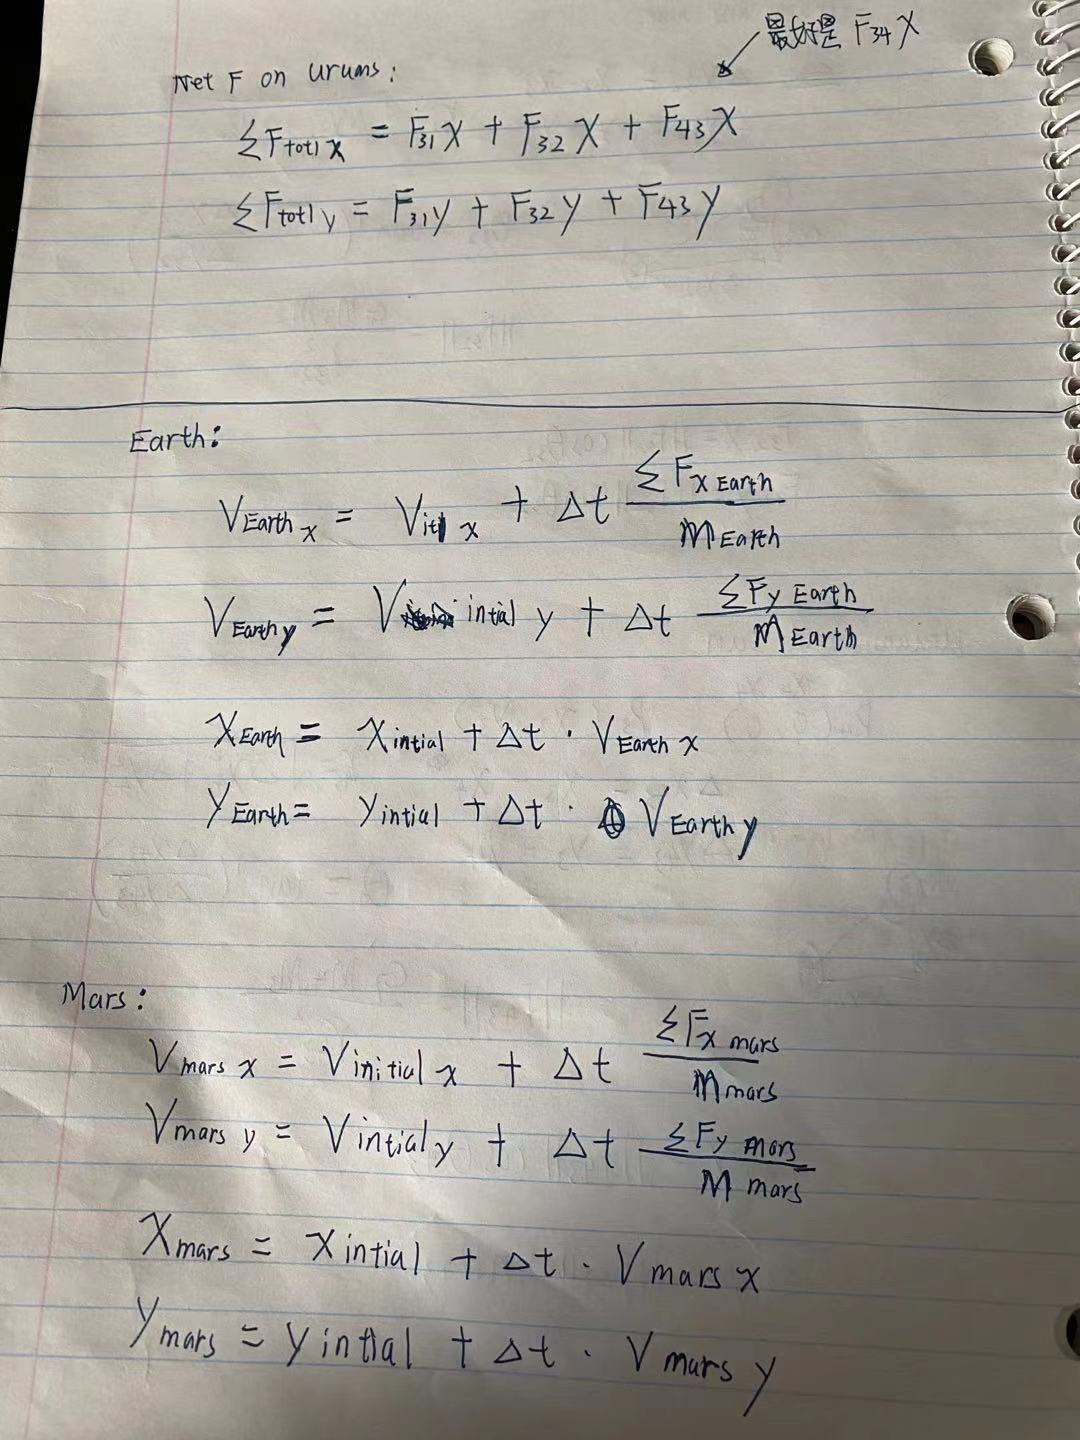 最好是 F34 X
Net F on Uruns:
ΣFtotl x = F31 X + F32 X + F43 X
ΣFtotl y = F31 y + F32 y + F43 y
Earth:
V Earth x = Vitl x + Δt ΣFx Earth / M Earth
V Earth y = V intial y + Δt ΣFy Earth / M Earth
X Earth = X intial + Δt · V Earth x
Y Earth = Y intial + Δt · V Earth y
Mars:
V mars x = V initial x + Δt ΣFx mars / M mars
V mars y = V intial y + Δt ΣFy mars / M mars
X mars = X intial + Δt · V mars x
Y mars = Y intial + Δt · V mars y